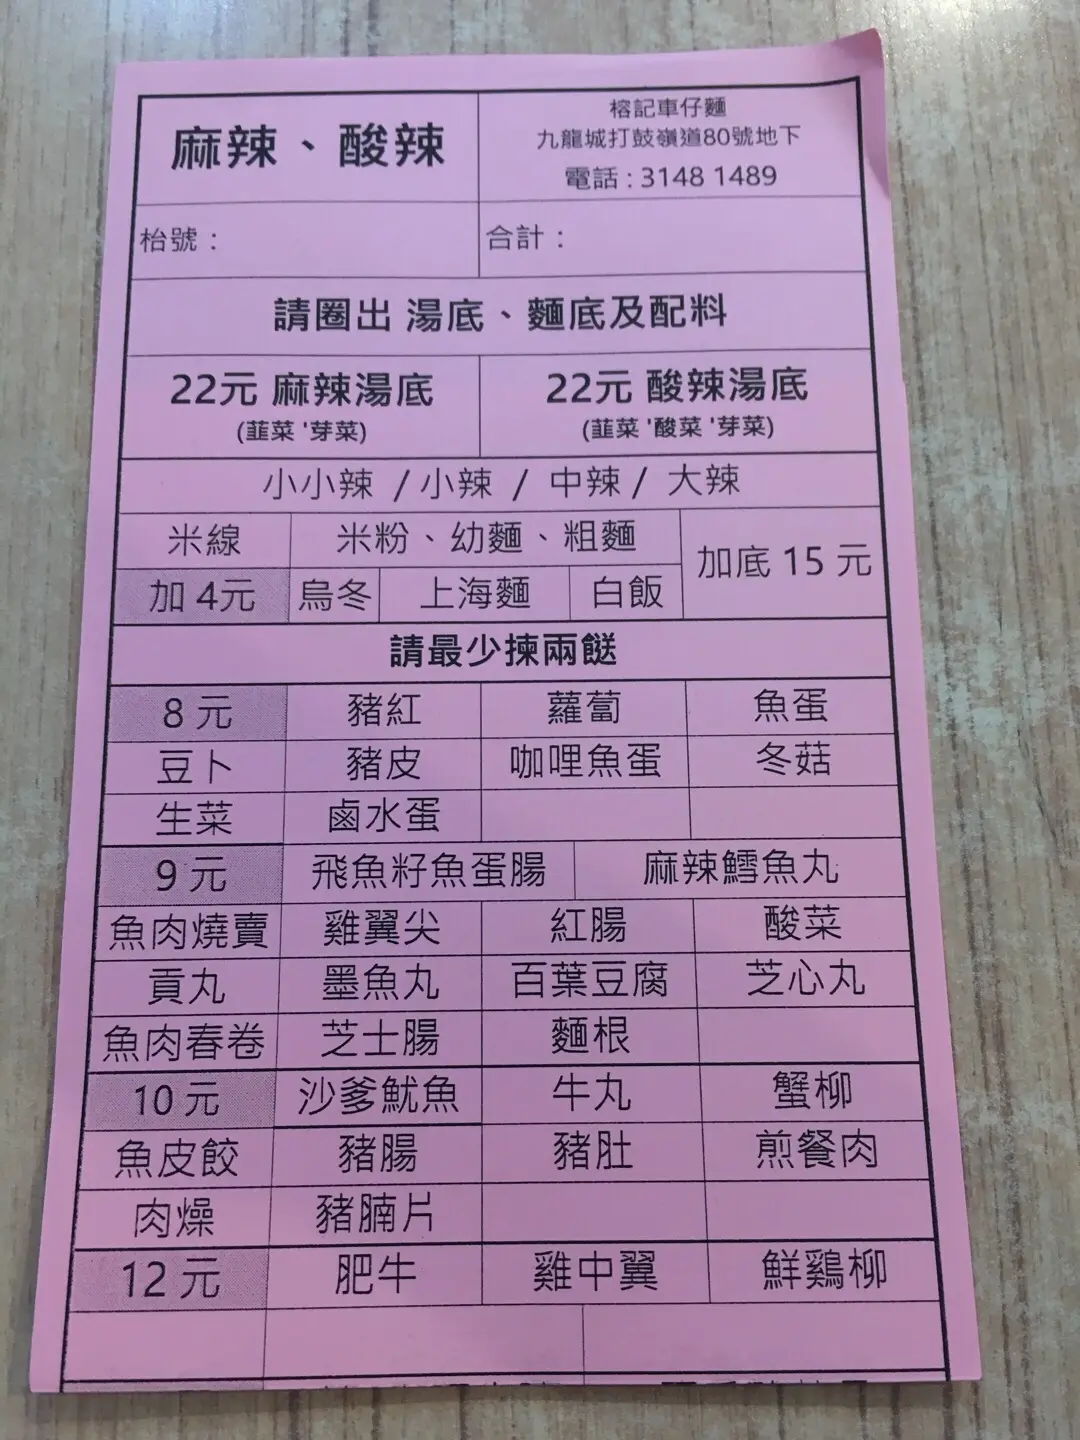 麻辣、酸辣
榕記車仔麵
九龍城打鼓嶺道80號地下
電話 : 3148 1489
枱號 :
合計 :
請圈出 湯底、麵底及配料
22元 麻辣湯底
(韮菜 '芽菜)
22元 酸辣湯底
(韮菜 '酸菜 '芽菜)
小小辣 / 小辣 / 中辣 / 大辣
米線 米粉、幼麵、粗麵 加底 15 元
加 4元 烏冬 上海麵 白飯
請最少揀兩餸
8 元 豬紅 蘿蔔 魚蛋
豆卜 豬皮 咖哩魚蛋 冬菇
生菜 鹵水蛋
9 元 飛魚籽魚蛋腸 麻辣鱈魚丸
魚肉燒賣 雞翼尖 紅腸 酸菜
貢丸 墨魚丸 百葉豆腐 芝心丸
魚肉春卷 芝士腸 麵根
10 元 沙爹魷魚 牛丸 蟹柳
魚皮餃 豬腸 豬肚 煎餐肉
肉燥 豬腩片
12 元 肥牛 雞中翼 鮮鷄柳